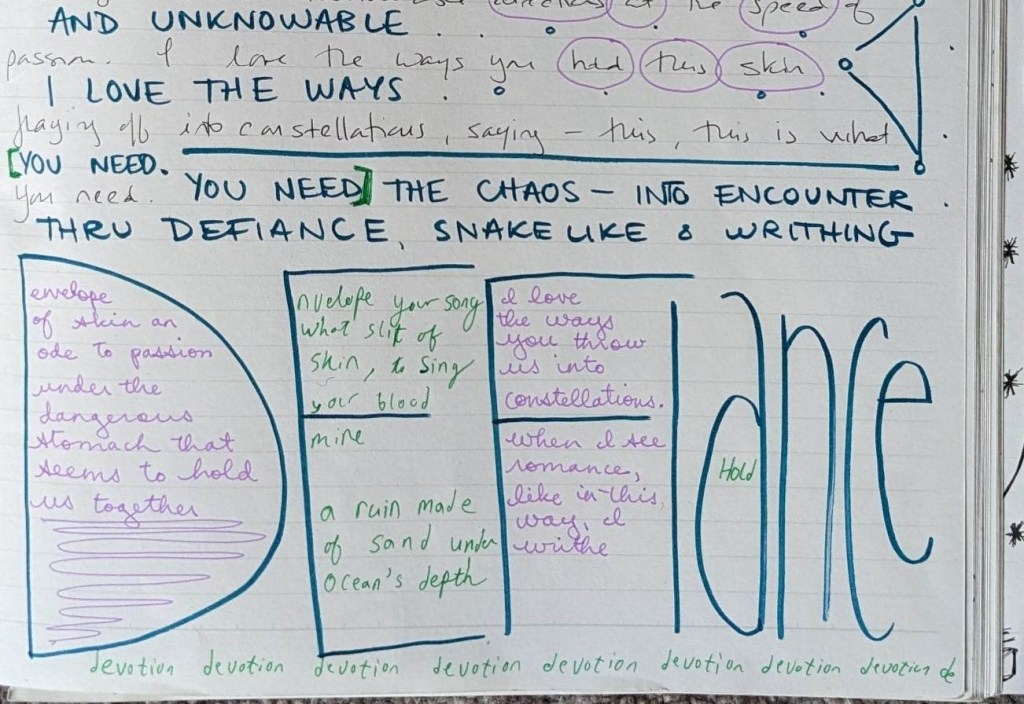 the speed of
AND UNKNOWABLE
passion. I love the ways you hold this skin
I LOVE THE WAYS
fraying off into constellations, saying - this, this is what
[YOU NEED.
you need.
YOU NEED] THE CHAOS - INTO ENCOUNTER
THRU DEFIANCE, SNAKELIKE & WRITHING
DEFIance
envelope
of skin an
ode to passion
under the
dangerous
stomach that
seems to hold
us together
nvelope your song
what slit of
skin, to sing
your blood
mine
a ruin made
of sand under
ocean's depth
I love
the ways
you throw
us into
constellations.
when I see
romance,
like in this
way, I
writhe
Hold
devotion devotion devotion devotion devotion devotion devotion devotion de